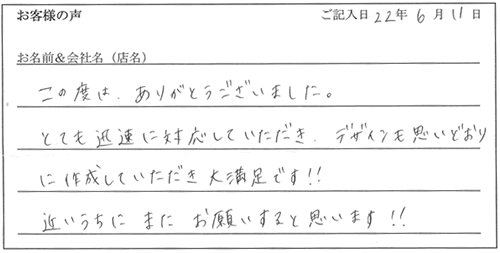 お客様の声 ご記入日 22年 6月 11日
お名前&会社名（店名）
この度は、ありがとうございました。
とても迅速に対応していただき、デザインも思いどおり
に作成していただき大満足です!!
近いうちに また お願いすると思います!!